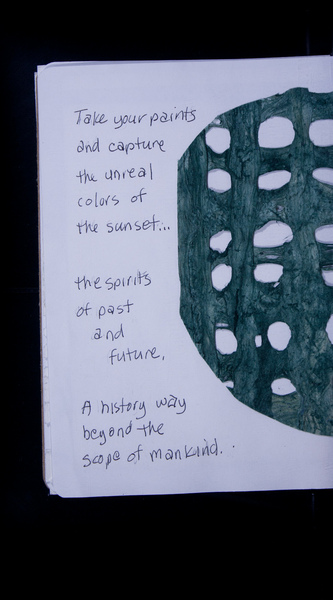 Take your paints
and capture
the unreal
colors of
the sunset...
the spirits
of past
and
future.
A history way
beyond the
scope of mankind. .